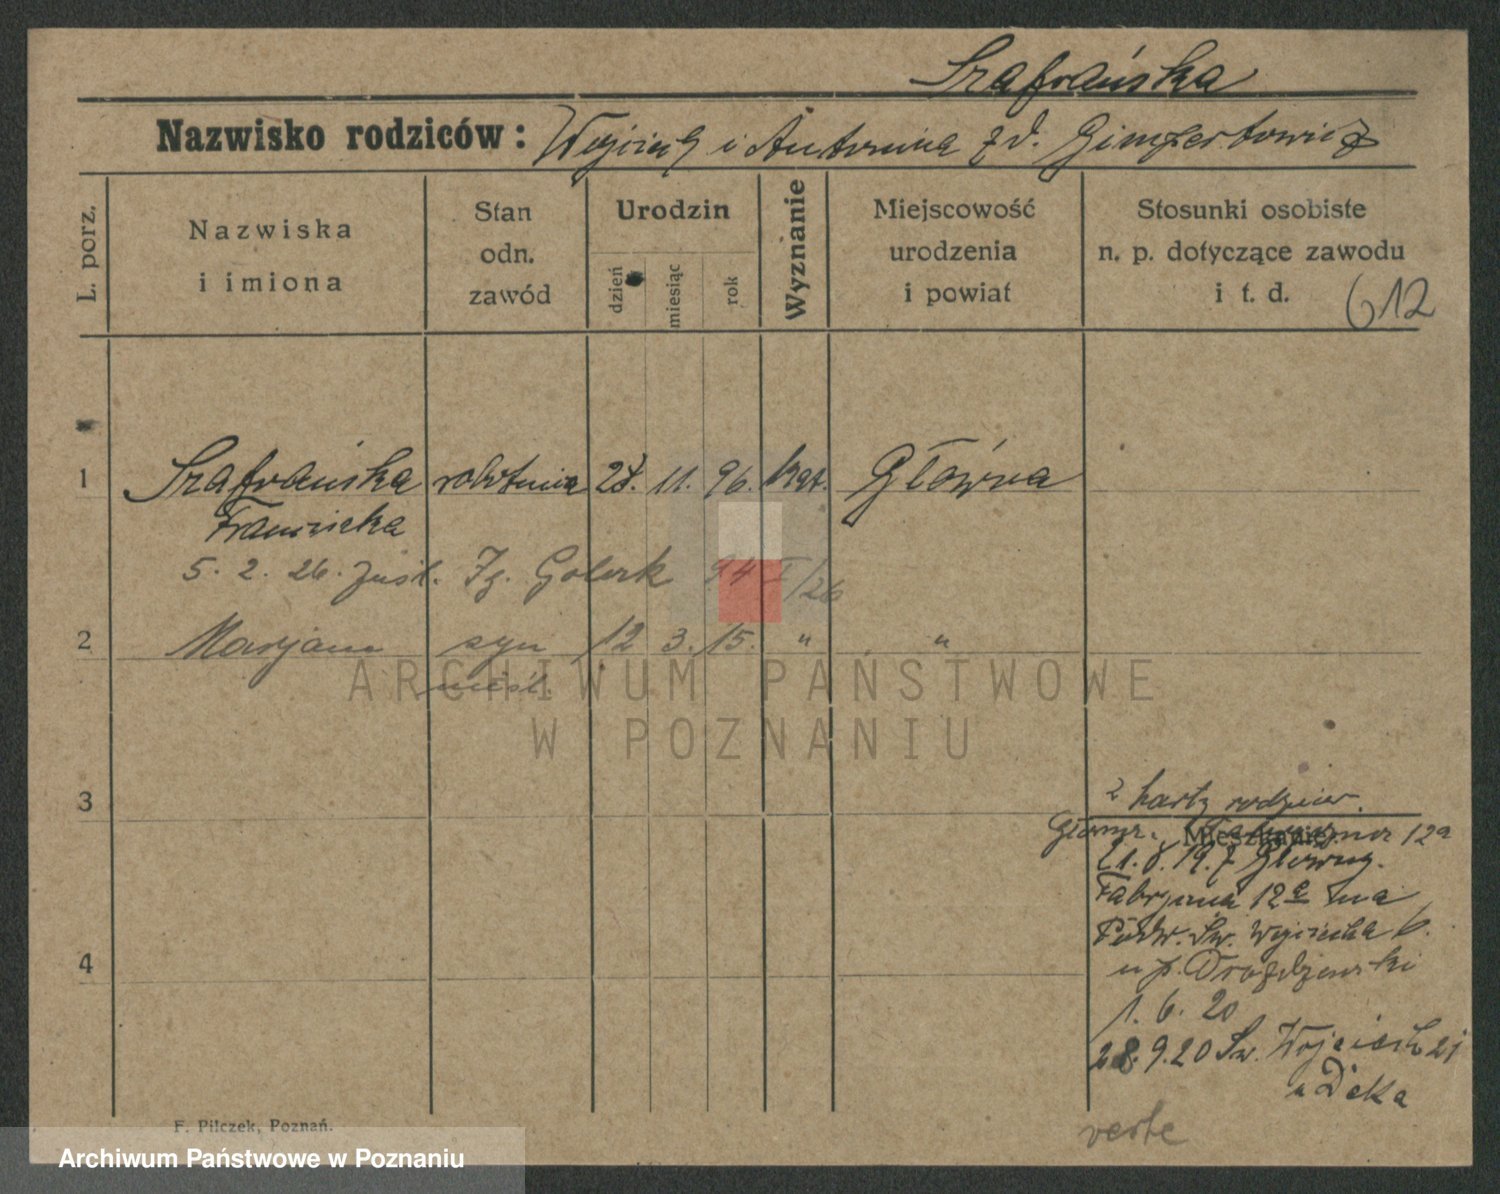 Szafrańska
Nazwisko rodziców: Wojciech i Antonina z d.
L. porz.
Nazwiska
i imiona
Stan
odn.
zawód
Urodzin
dzień
miesiąc
rok
Wyznanie
Miejscowość
urodzenia
i powiat
Stosunki osobiste
n. p. dotyczące zawodu
i t. d.
612
1 Szafrańska robotnica 11. 96. kat. Główna
Franciszka
5. 2. 26. Golerk 94 I/26
2 Marjan syn 12 3. 15. " "
nieśl.
ARCHIWUM PAŃSTWOWE
W POZNANIU
3
2 karty rodzicow.
Mieszkanie: 12a
21. 8. 19. z Główny.
Fabryczna 12a na
Podw. Św. Wojciecha 6.
u p. Drozdzewski
1. 6. 20
4
28. 9. 20 Św. Wojciech 21
u Deka
verte
F. Pilczek, Poznań.
Archiwum Państwowe w Poznaniu